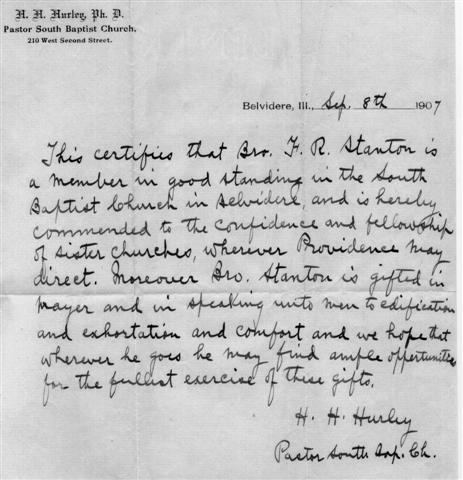 H. H. Hurley, Ph. D.
Pastor South Baptist Church,
210 West Second Street.
Belvidere, Ill., Sep. 8th 1907
This certifies that Bro. F. R. Stanton is
a member in good standing in the South
Baptist Church in Belvidere, and is hereby
commended to the confidence and fellowship
of sister churches, wherever Providence may
direct. Moreover Bro. Stanton is gifted in
prayer and in speaking unto men to edification
and exhortation and comfort, and we hope that
wherever he goes he may find ample opportunities
for the fullest exercise of these gifts.
H. H. Hurley
Pastor South Bap. Ch.